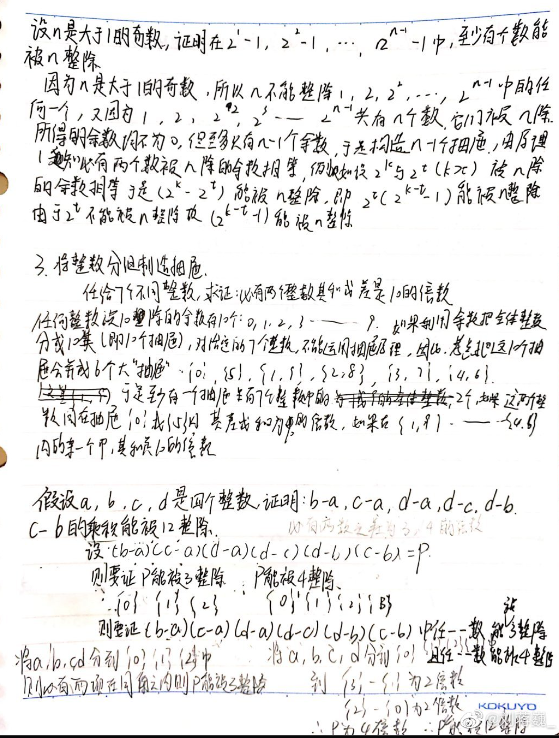 设n是大于1的奇数,证明在2¹-1, 2²-1, …, 2ⁿ⁻¹-1中,至少有个数能
被n整除
因为n是大于1的奇数,所以n不能整除1, 2, 2², …, 2ⁿ⁻¹中的任
何一个,又因为1, 2, 2², 2³ …… 2ⁿ⁻¹共有n个数,它们被n除
所得的余数均不为0,但至多只有n-1个余数,于是构造n-1个抽屉,由原理
1知必有两个数被n除的余数相等,设2ᵏ与2ᵗ(k>t)被n除
的余数相等于是(2ᵏ-2ᵗ)能被n整除,即2ᵗ(2ᵏ⁻ᵗ-1)能被n整除
由于2ᵗ不能被n整除故(2ᵏ⁻ᵗ-1)能被n整除
3. 将整数分组制造抽屉.
任给7个不同整数,求证:必有两个整数其和或差是10的倍数
任何整数被10整除的余数有10个:0, 1, 2, 3 …… 9. 如果利用余数把全体整数
分成10类(即10个抽屉),对给定的7个整数,不能运用抽屉原理,因此,考虑把这10个抽
屉合并成6个大"抽屉". {0}, {5}, {1, 9}, {2, 8}, {3, 7}, {4, 6}.
于是至少有一个抽屉占有7个整数中的2个,如果这两个整
数同在抽屉{0}或{5}内 其差或和为10的倍数,如果在{1, 9} …… {4, 6}
内的某一个中,其和是10的倍数
假设a, b, c, d是四个整数,证明:b-a, c-a, d-a, d-c, d-b,
c-b的乘积能被12整除.
设(b-a)(c-a)(d-a)(d-c)(d-b)(c-b)=P
则要证P能被3整除 P能被4整除
{0} {1} {2} {0} {1} {2} {3}
则要证(b-a)(c-a)(d-a)(d-c)(d-b)(c-b)中任一数能被3整除
将a, b, c, d分到{0} {1} {2}中 将a, b, c, d分到{0} 任一数能被4整除
则必有两项在同一内则P能被3整除 到{3}-{1}为2倍数
{2}-{0}为2倍数
∴P为4倍数 ∴P能被12整除
KOKUYO